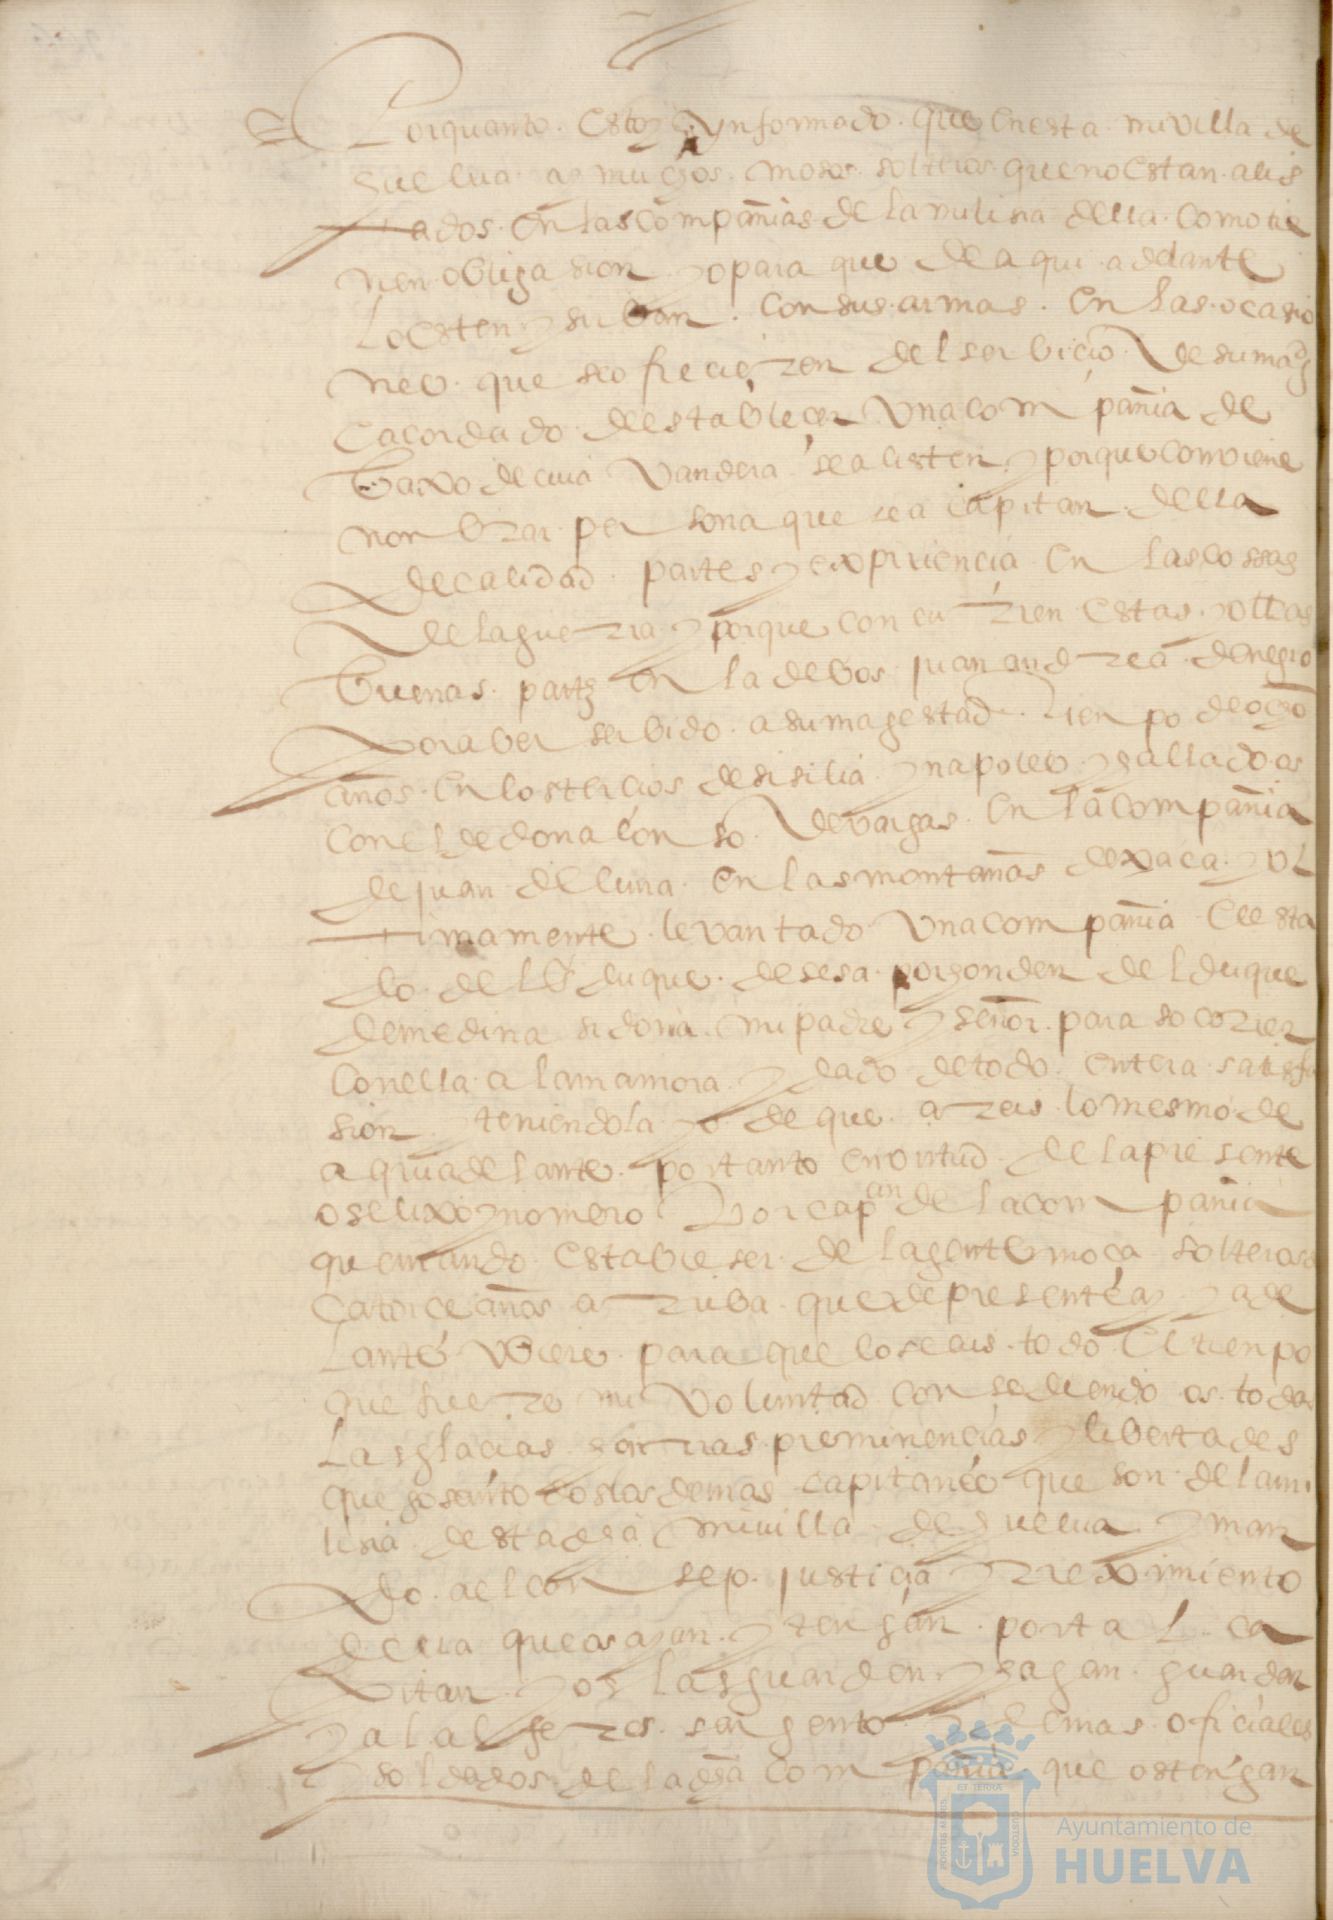 Porquanto estoy ynformado que en esta mi villa de
guelua ay muchos mosos solteros que no estan alis
tados en las compañias de la milisia della como tie
nen obligasion yo para que de aqui adelante
lo esten y sirban con sus armas en las ocasio
nes que se ofrecieren del serbicio de su magd
e acordado de estableçer una compañia de
baxo de cuia vandera se alisten y porque conviene
nonbrar persona que sea capitan della
de calidad partes y expiriencia en las cossas
de la guerra y porque concurren estas y otras
buenas partes en la de bos juan andrea de negro
por aber serbido a su magestad tienpo de ocho
años en los tercios de sisilia y napoles y hallado os
con el de don alonso de vargas en la compañia
de juan de luna en las montañas de xaca y vl
timamente levantado una compañia
do del duque de sesa por horden del duque
de medina sidonia mi padre y señor para socorrer
con ella a la mamora y dado de todo entera satisfa
sion y teniendola yo de que areis lo mesmo de
aqui adelante por tanto en virtud de la presente
os elixo y nomero por capan de la compañia
que mando estableser de la gente moça soltera de
catorce años arriba que de presente ay y ade
lante vbiere para que lo seais todo el tienpo
que fuere mi voluntad consediendo os todas
las glacias honrras preminencias y libertades
que gosan todos los demas capitanes que son de la mi
lisia desta dha mi villa de guelua y man
do al consejo justicia y reximiento
de ella que os ayan y tengan por tal ca
pitan y os las guarden y hagan guardar
y al alferes sargento y demas oficiales
y soldados de la dha compañia que os tengan
PORTUS MARIS
ET TERRA
CUSTODIA
Ayuntamiento de
HUELVA